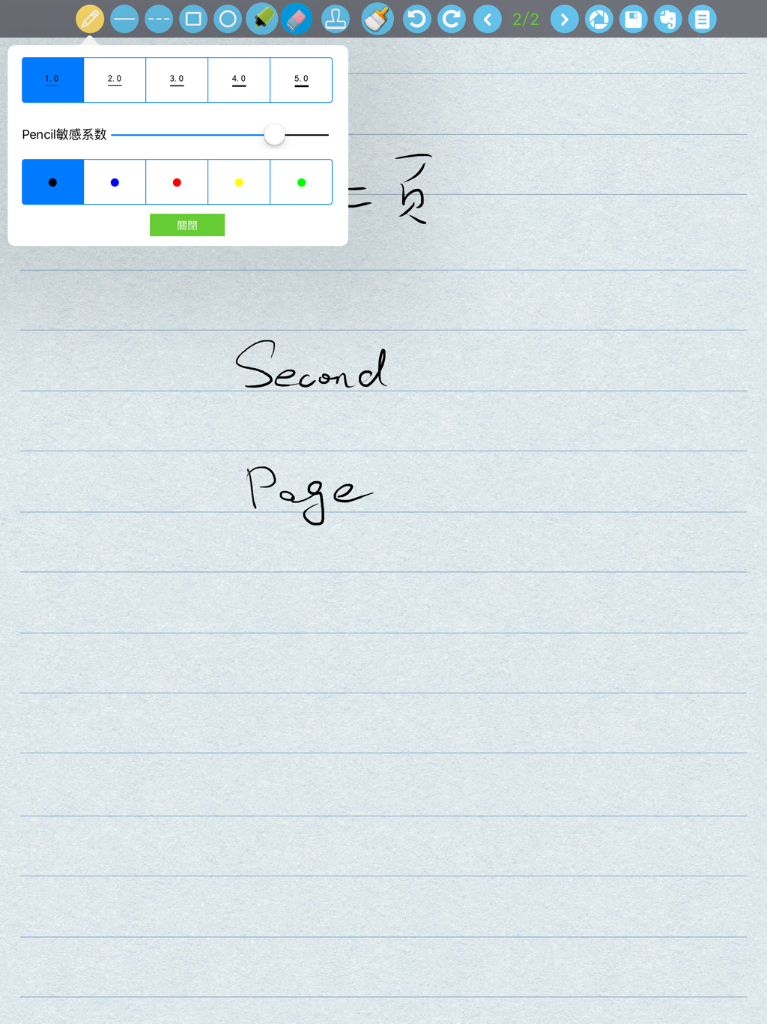 2/2
1.0 2.0 3.0 4.0 5.0
Pencil敏感系数
關閉
二頁
Second
Page